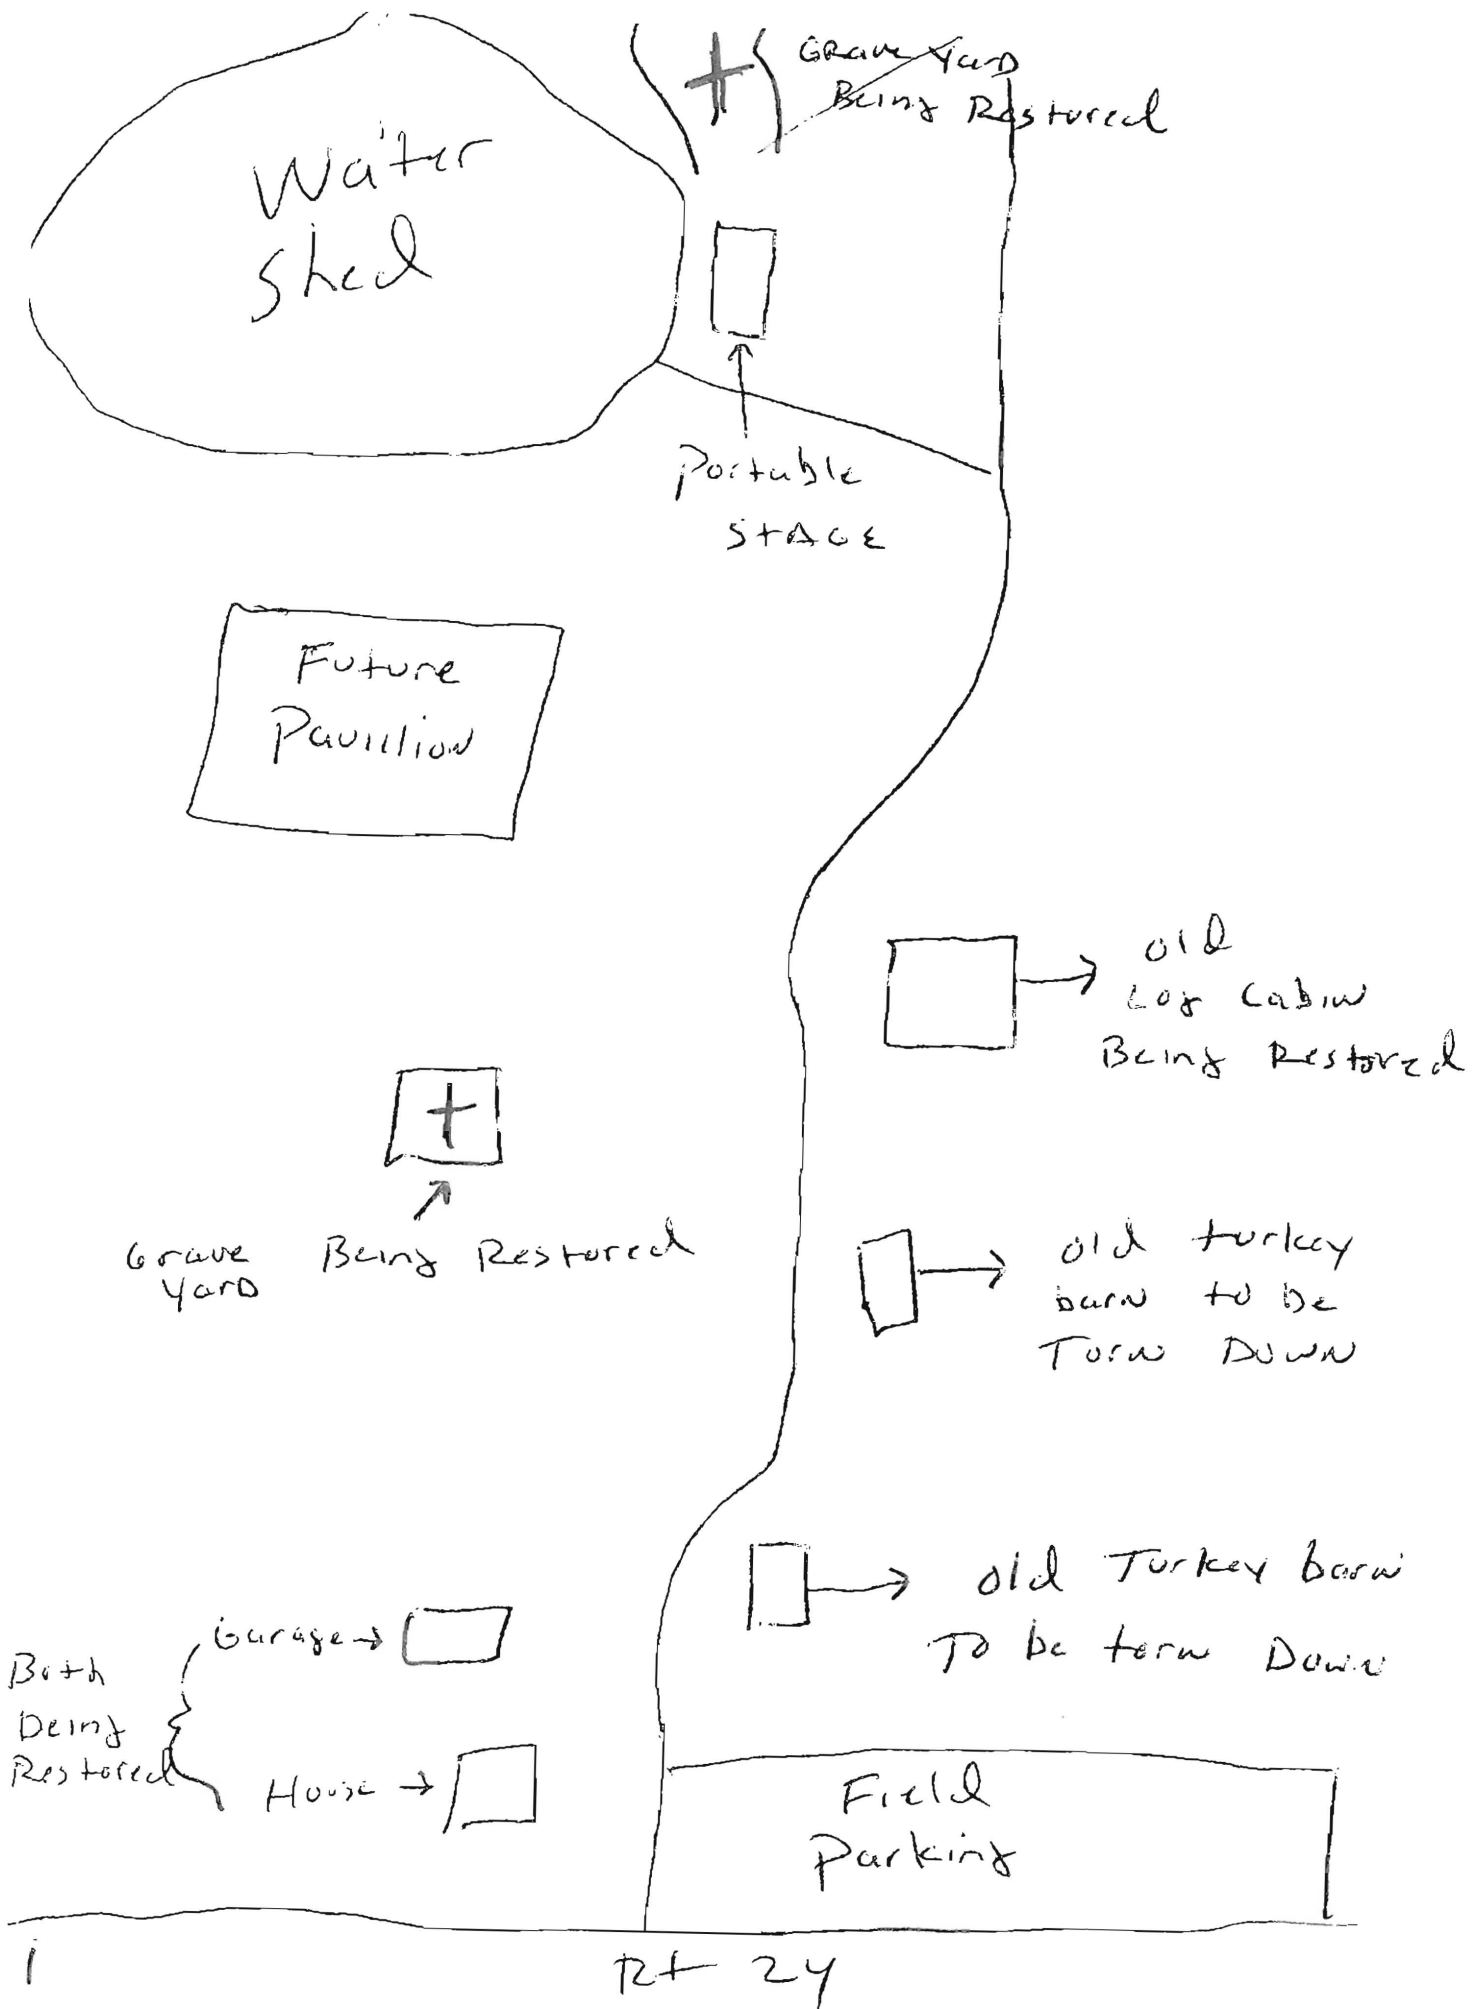 Grave Yard
Being Restored
Water
Shed
Portable
STAGE
Future
Pavilion
old
Log Cabin
Being Restored
Grave Being Restored
Yard
old turkey
barn to be
Torn Down
old Turkey barn
To be torn Down
Garage
Both
Being
Restored
House
Field
Parking
Rt 24